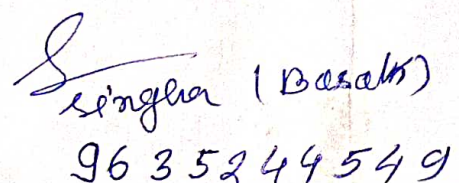 S Singha (Basak)
9635244549